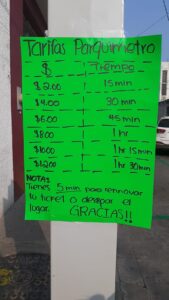 Tarifas Parquimetro
$ Tiempo
$2.00 15 min
$4.00 30 min
$6.00 45 min
$8.00 1 hr
$10.00 1 hr 15 min
$12.00 1 hr 30 min
NOTA:
Tienes 5 min para rennovar
tu ticket o desalojar el
lugar. GRACIAS!!